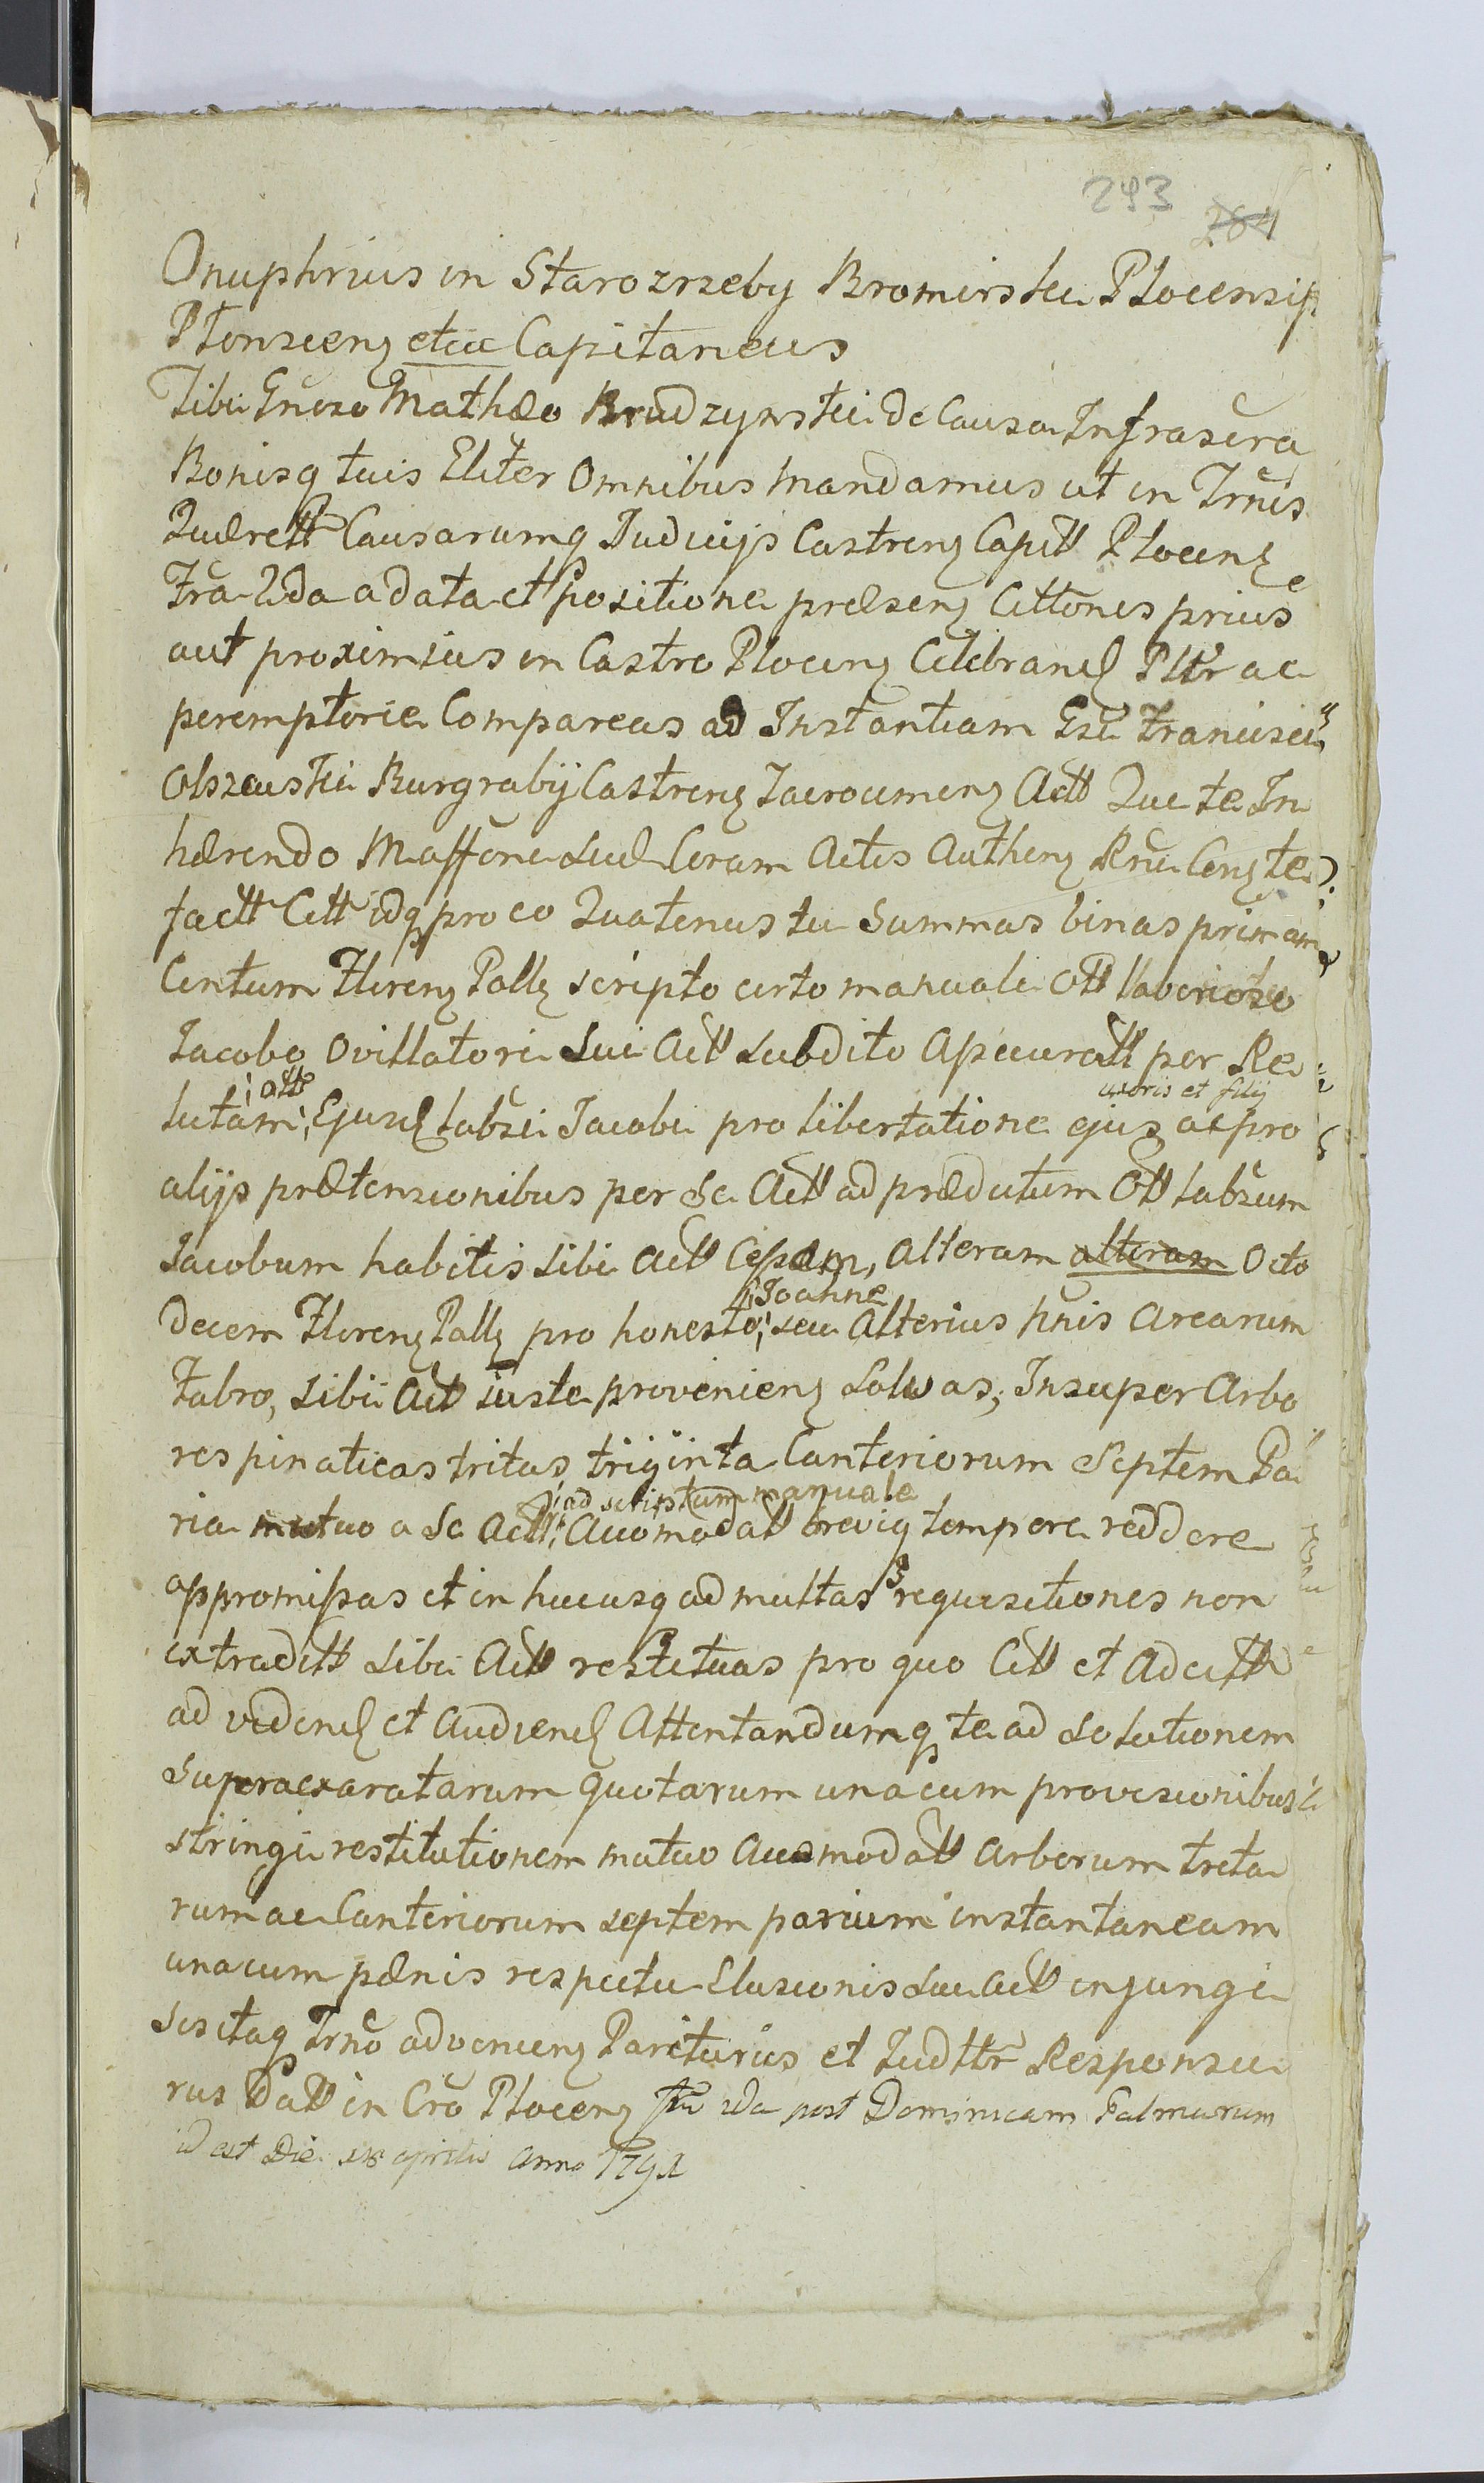 293 284
Onuphrius in Starozrzeby Bromirski Płocensis
Płonscens etcc Capitaneus
Tibi Gnoso Mathæo Brudzynski de Causa Infrascra
Bonisq tuis Gliter Omnibus Mandamus ut in Trnis
Quærell Causarumq Judicijs Castrens Capitt Płocens
Fra 2da a data et positione præsens Cittonis prius
aut proximius in Castro Płocens Celebrand Pltr ac
peremptorie Compareas ad Instantiam Gsi Francisci
Olszewski Burgrabij Castrens Act Qui te In
hærendo Mafforie Suæ Coram Actis Authens Rni Cens te
factt Citt idq pro eo Quatenus tu Summas binas primam
Centum Florens Polls scripto certo manuali Ott laborioso
Jacobo Ovillatori Sui Actt Subdito Apecuratt per Re
lutam ¦att¦ Ejusd labsi Jacobi pro libertatione ejus uxoris et filij ac pro
alijs prætensionibus per Se Actt ad prædictum Ott labsum
Jacobum habitis Sibi Actt Cessam, Alteram alteram Octo
decem Florens Polls pro honesto ¦Joanne¦ seu Alterius hnis Arearum
Fabro, Sibi Act iuste proveniens Solvas, Insuper Arbo
res pinaticas tritas triginta Canteriorum Septem Pa
ria mutuo a Se Actt ¦ad scriptum manuale¦ Accomodatt breviq tempore reddere
appromissas et in hucusq ad multas requisitiones non
extraditt Sibi Actt restituas pro quo Citt et Adcitt
ad vidend et Audiend Attentandumq te ad Solutionem
Supraexaratarum quotarum unacum provisionibus
stringi restitutionem mutuo Accomodatt Arborum trita
rum ac Canteriorum septem parium instantaneam
unacum pænis respectu Elusionis Sui Actt injungi
Sis itaq Trno adveniens Pariturus et Judttr Responsu
rus Datt in Cro Płocens fra 2da post Dominicam Palmarum
id est Die aprilis Anno